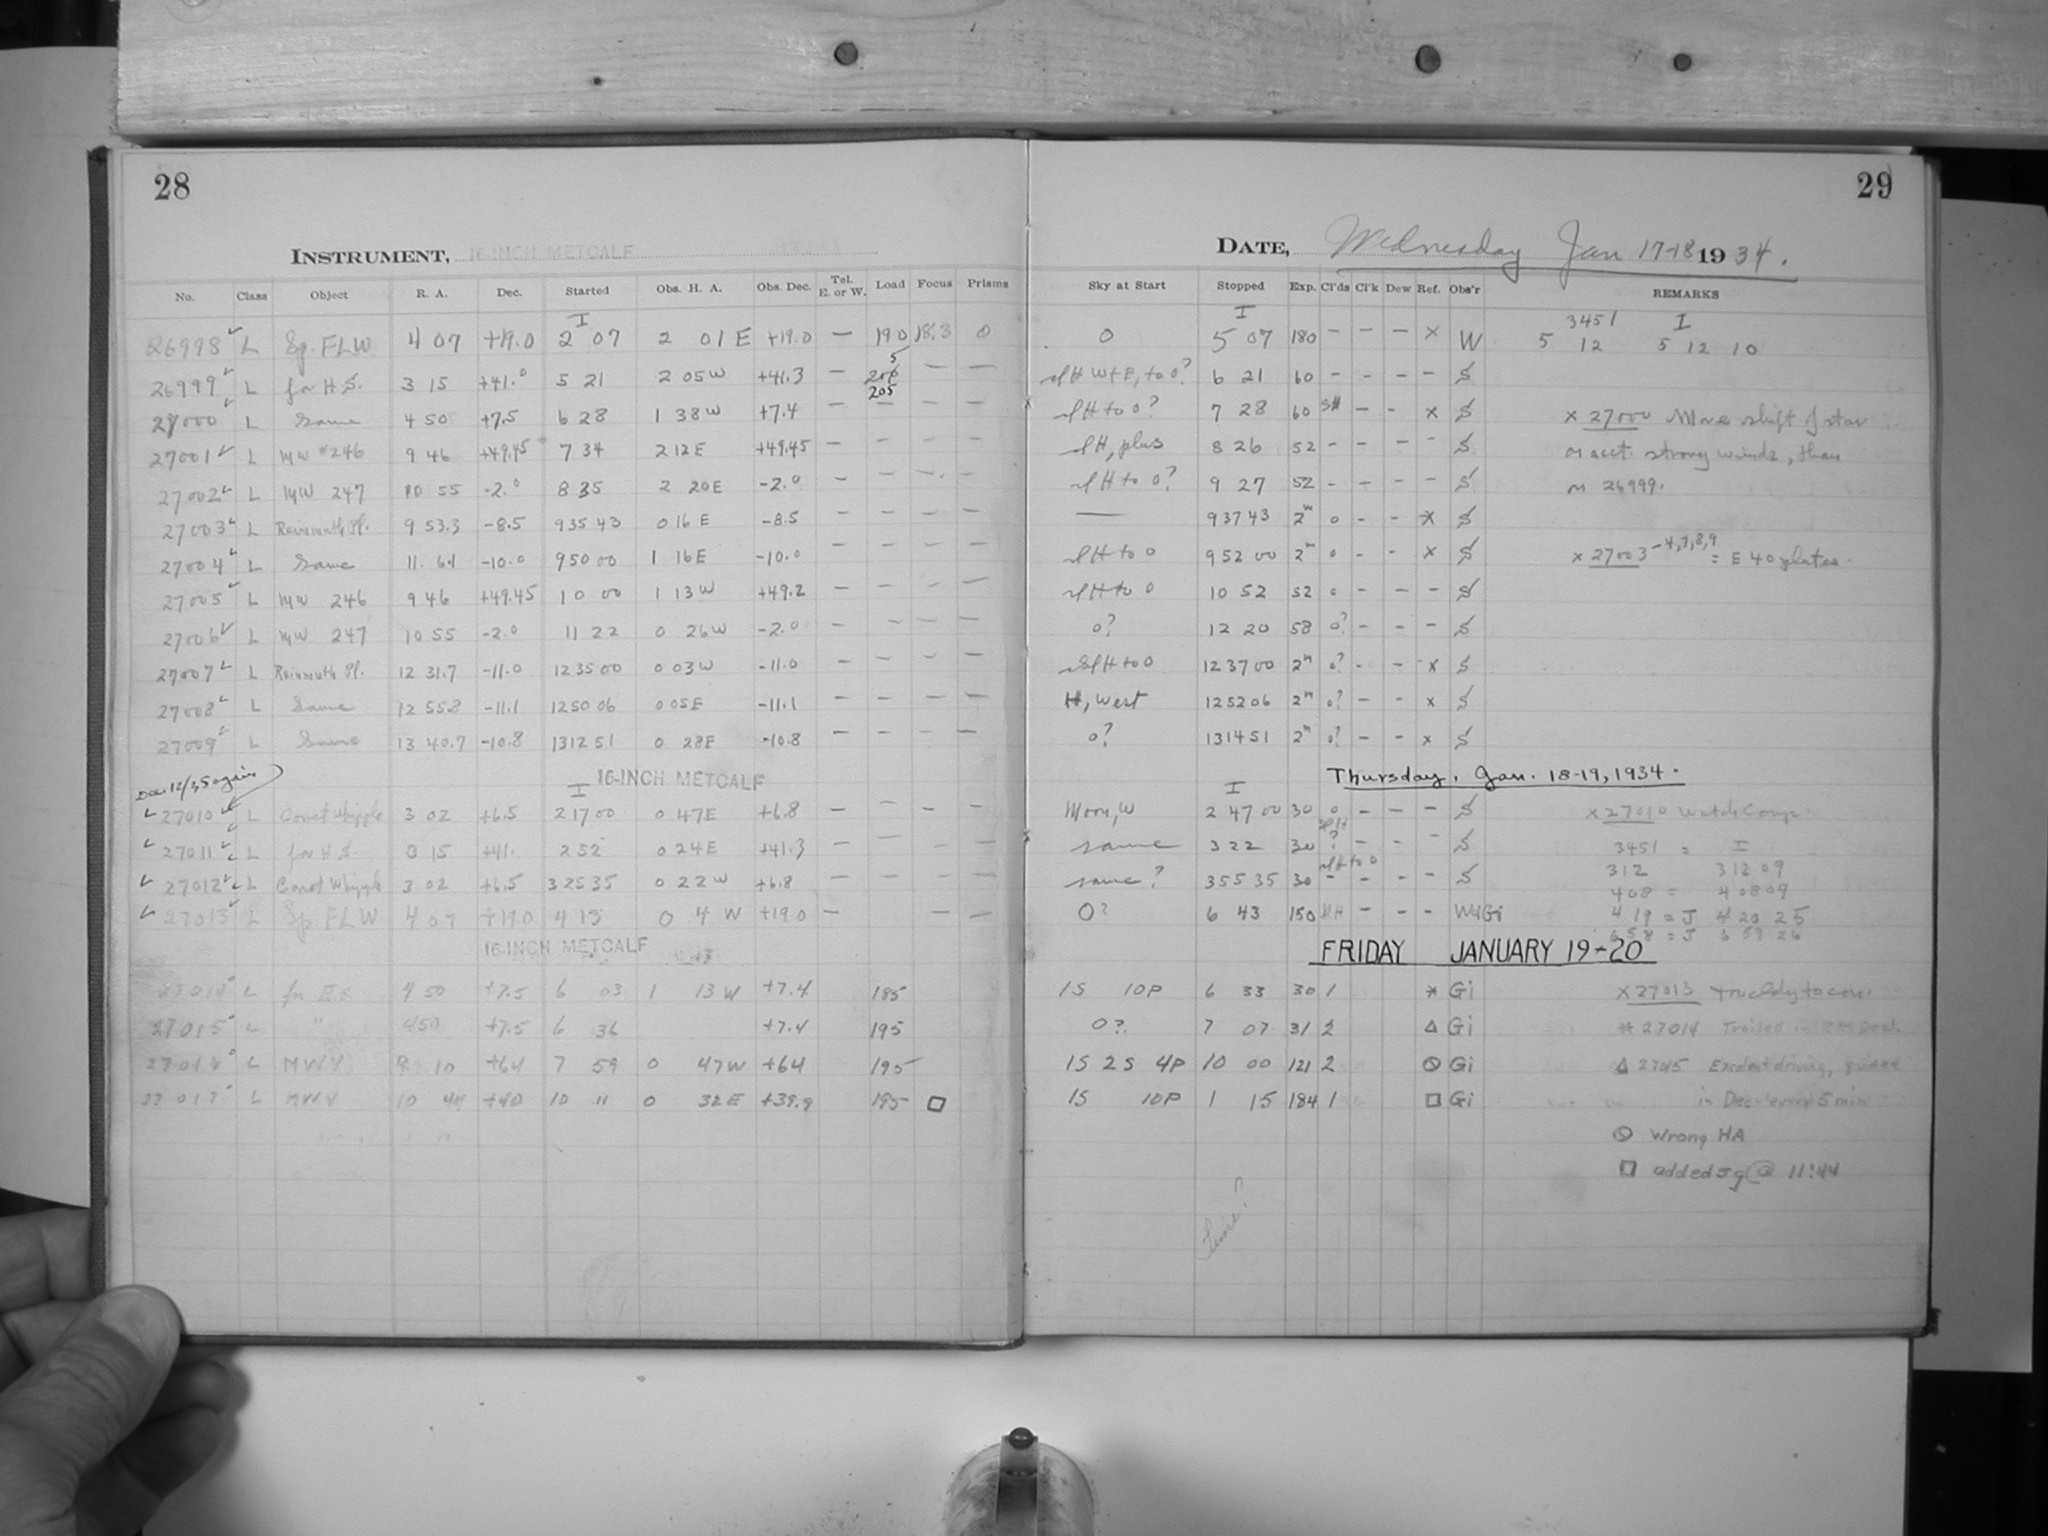 28
INSTRUMENT, 16-INCH METCALF
No. Class Object R. A. Dec. Started Obs. H. A. Obs. Dec. Tel. E. or W. Load Focus Prisms
I
26998 L Sp. FLW 4 07 +19.0 2 07 2 01 E +19.0 — 190 18.3 0
26999 L for H.S. 3 15 +41.0 5 21 2 05 W +41.3 — 205 — —
27000 L Same 4 50 +7.5 6 28 1 38 W +7.4 — — — —
27001 L MW #246 9 46 +49.45 7 34 2 12 E +49.45 — — — —
27002 L MW 247 10 55 -2.0 8 35 2 20 E -2.0 — — — —
27003 L Reinmuth Pl. 9 53.3 -8.5 9 35 43 0 16 E -8.5 — — — —
27004 L Same 11 6.1 -10.0 9 50 00 1 16 E -10.0 — — — —
27005 L MW 246 9 46 +49.45 10 00 1 13 W +49.2 — — — —
27006 L MW 247 10 55 -2.0 11 22 0 26 W -2.0 — — — —
27007 L Reinmuth Pl. 12 31.7 -11.0 12 35 00 0 03 W -11.0 — — — —
27008 L Same 12 55.8 -11.1 12 50 06 0 05 E -11.1 — — — —
27009 L Same 13 40.7 -10.8 13 12 51 0 28 E -10.8 — — — —
Dec. 12/35 again
16-INCH METCALF
I
27010 L Comet Whipple 3 02 +6.5 2 17 00 0 47 E +6.8 — — — —
27011 L for H.S. 3 15 +41. 2 52 0 24 E +41.3 — — — —
27012 L Comet Whipple 3 02 +6.5 3 25 35 0 22 W +6.8 — — — —
27013 L Sp FLW 4 07 +19.0 4 13 0 4 W +19.0 — — —
16-INCH METCALF
27014 L for HS 4 50 +7.5 6 03 1 13 W +7.4 185
27015 L " 4 50 +7.5 6 36 +7.4 195
27016 L MWV 10 +64 7 59 0 47 W +64 195
27017 L MWV 10 44 +40 10 11 0 32 E +39.9 195 □
29
DATE, Wednesday Jan 17-18 1934.
Sky at Start Stopped Exp. Cl'ds Cl'k Dew Ref. Obs'r REMARKS
I 3451 I
0 5 07 180 — — — x W 5 12 5 12 10
sl H W+E, to 0? 6 21 60 - - - - S
sl H to 0? 7 28 60 SH - - x S x 27000 More shift of star
sl H, plus 8 26 52 - - - - S on acct. strong winds, than
sl H to 0? 9 27 52 - - - - S on 26999.
— 9 37 43 2m 0 - - x S
sl H to 0 9 52 00 2m 0 - - x S x 27003-4,7,8,9 = E 40 plates.
sl H to 0 10 52 52 0 - - - S
0? 12 20 58 0? - - - S
Sl H to 0 12 37 00 2m 0? - - x S
H, West 12 52 06 2m 0? - - x S
0? 13 14 51 2m 0? - - x S
Thursday, Jan. 18-19, 1934.
I
Moon, W 2 47 00 30 0 - - - S x 27010 Watch Comp.
same 3 22 30 ? - - - S 3451 = I
same? 3 55 35 30 sl H to 0 - - - - S 312 3 12 09
408 = 4 08 09
0? 6 43 150 - - - W+Gi 4 19 = J 4 20 25
6 58 = J 6 59 26
FRIDAY JANUARY 19-20
1S 10P 6 33 30 1 * Gi x 27013
0? 7 07 31 2 △ Gi * 27014 Trailed in Dec.
1S 2S 4P 10 00 121 2 ⊘ Gi △ 27015 Excellent driving, guided
1S 10P 1 15 184 1 □ Gi in Dec every 5 min
⊘ Wrong HA
□ added @ 11:44
Time?